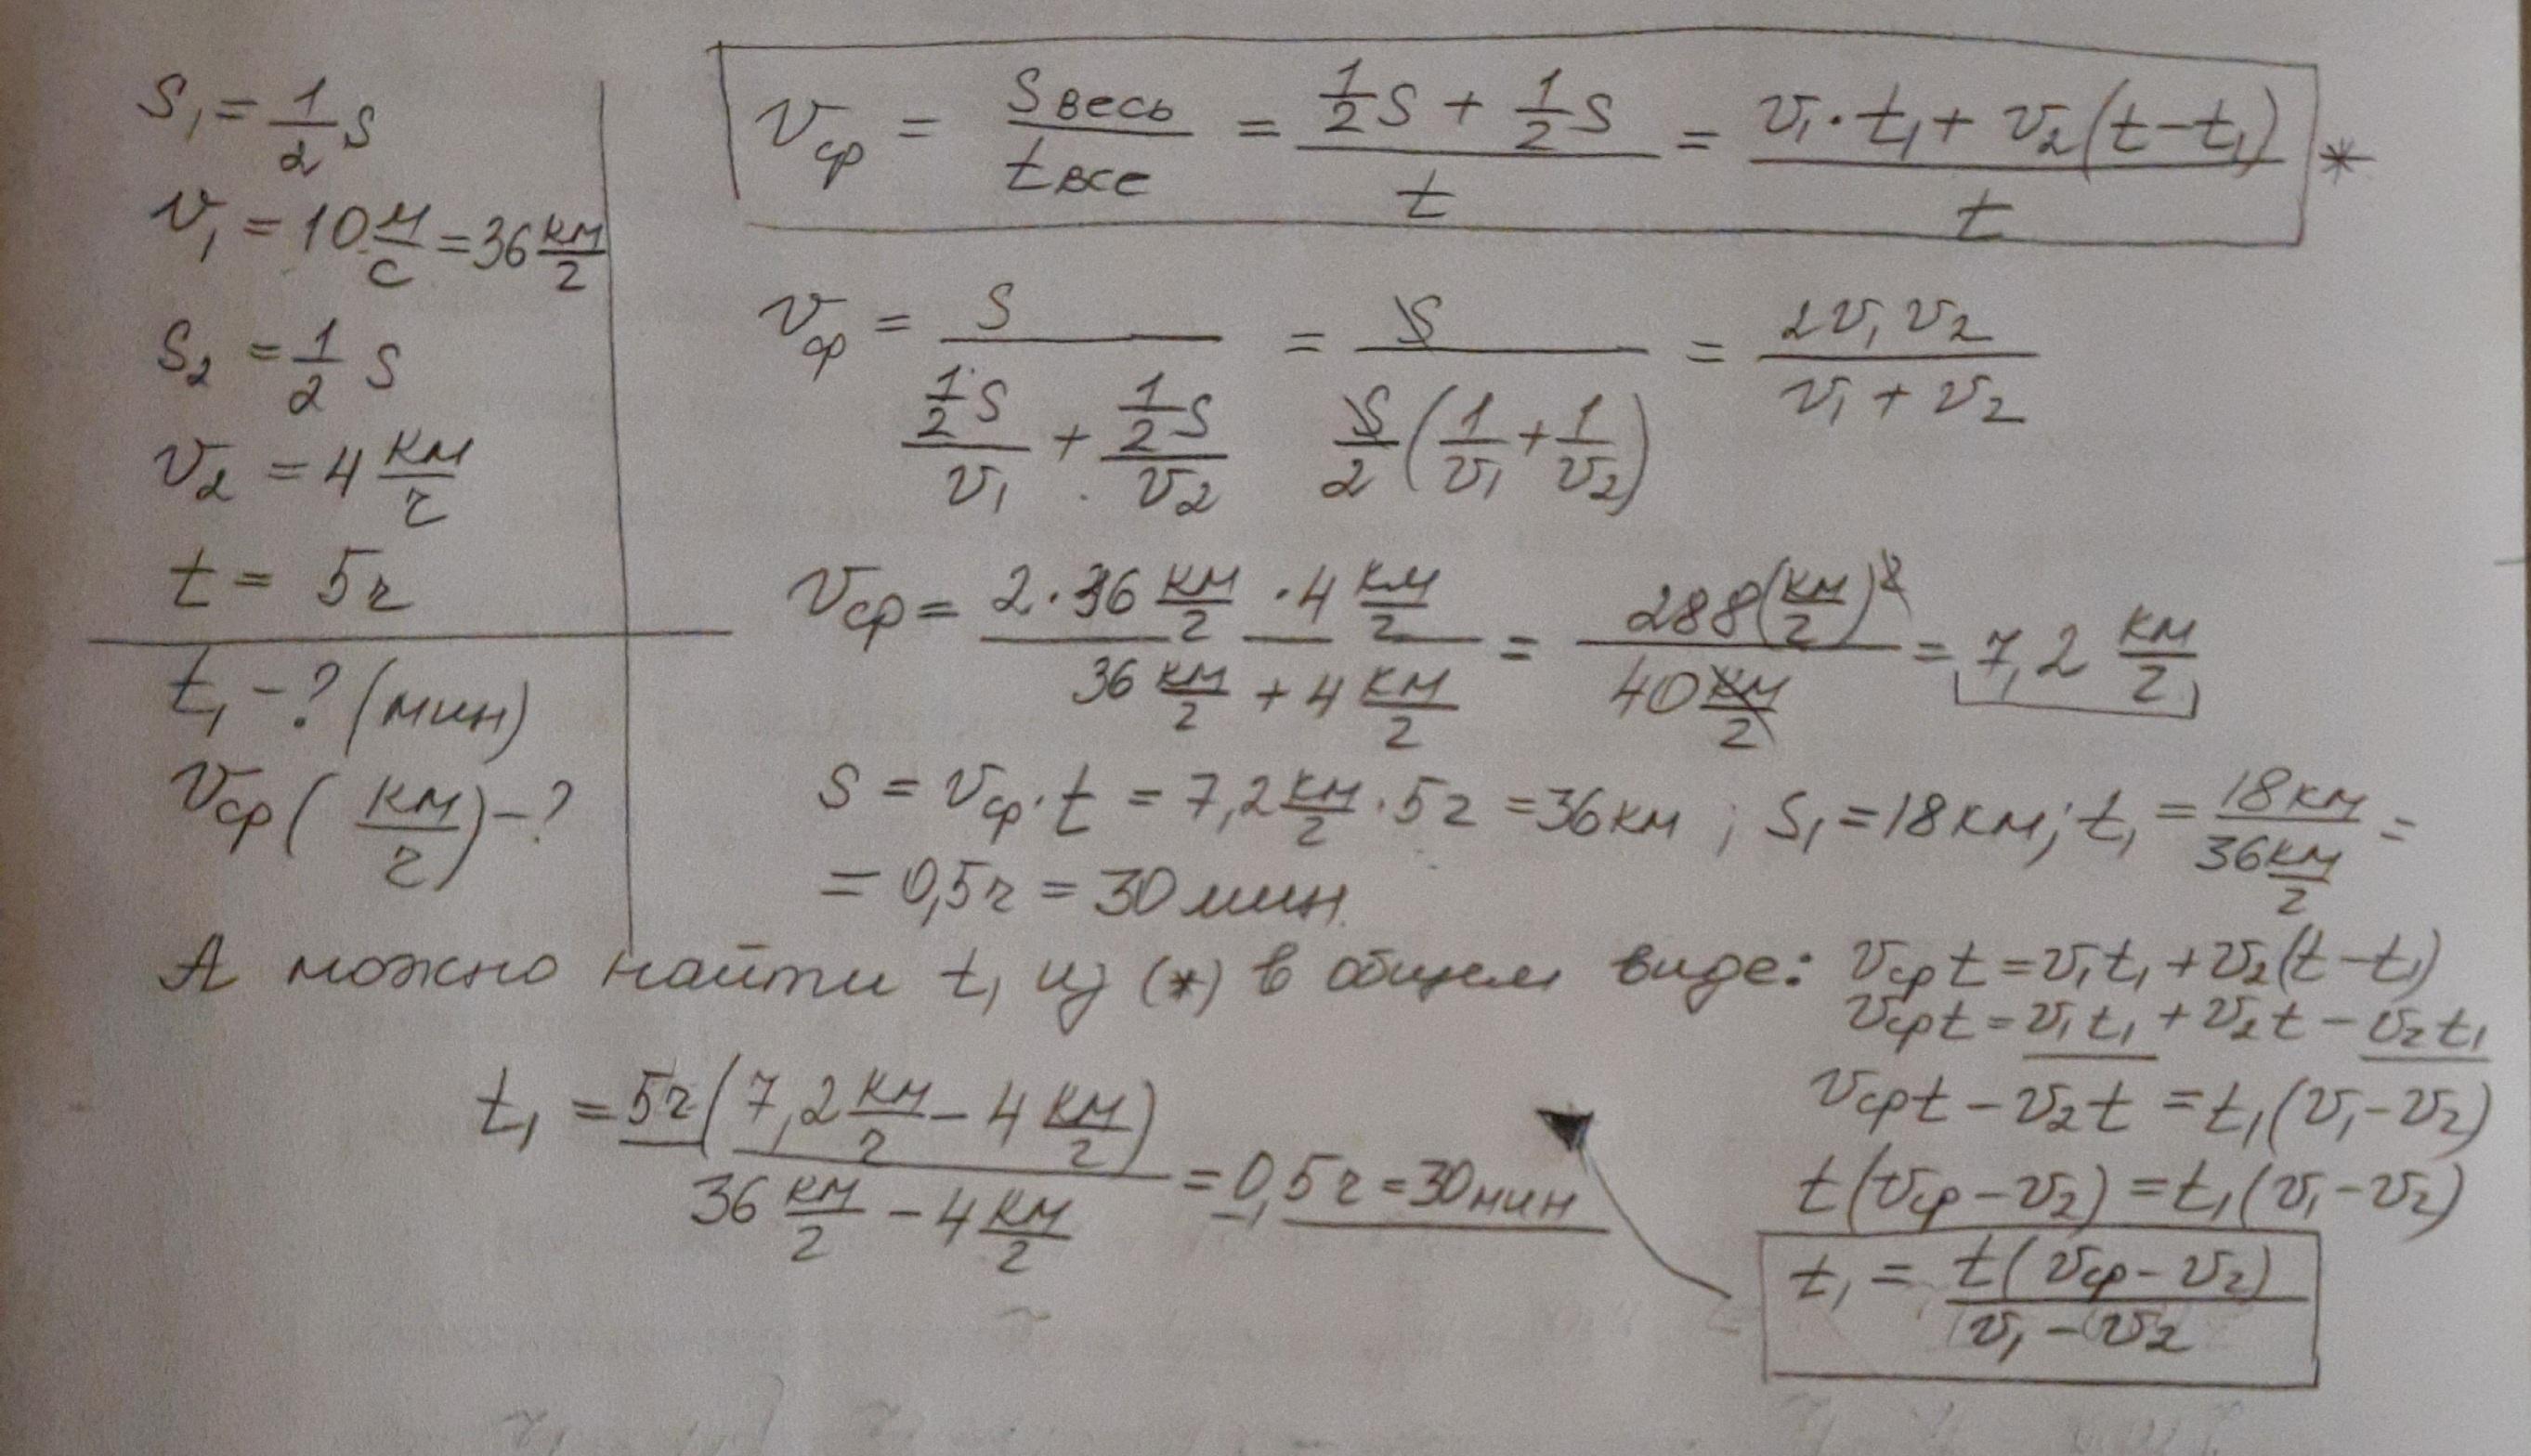 S₁ = 1/2 S
v₁ = 10 м/с = 36 км/г
S₂ = 1/2 S
v₂ = 4 км/г
t = 5г
t₁ - ? (мин)
vср (км/г) - ?
vср = Sвесь/tвсе = (1/2 S + 1/2 S)/t = (v₁·t₁ + v₂(t-t₁))/t *
vср = S/((1/2 S)/v₁ + (1/2 S)/v₂) = S/(S/2 (1/v₁ + 1/v₂)) = 2v₁v₂/(v₁ + v₂)
vср = (2·36 км/г · 4 км/г)/(36 км/г + 4 км/г) = 288(км/г)²/40 км/г = 7,2 км/г
S = vср·t = 7,2 км/г · 5г = 36км ; S₁ = 18км; t₁ = 18км/36км/г =
= 0,5г = 30мин.
А можно найти t₁ из (*) в общем виде: vср t = v₁t₁ + v₂(t-t₁)
vср t = v₁t₁ + v₂t - v₂t₁
vср t - v₂t = t₁(v₁-v₂)
t(vср - v₂) = t₁(v₁-v₂)
t₁ = t(vср - v₂)/(v₁ - v₂)
t₁ = 5г(7,2 км/г - 4 км/г)/(36 км/г - 4 км/г) = 0,5г = 30мин